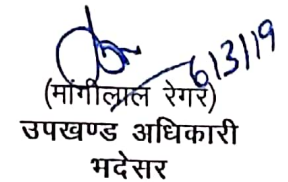 6/3/19
(मांगीलाल रेगर)
उपखण्ड अधिकारी
भदेसर